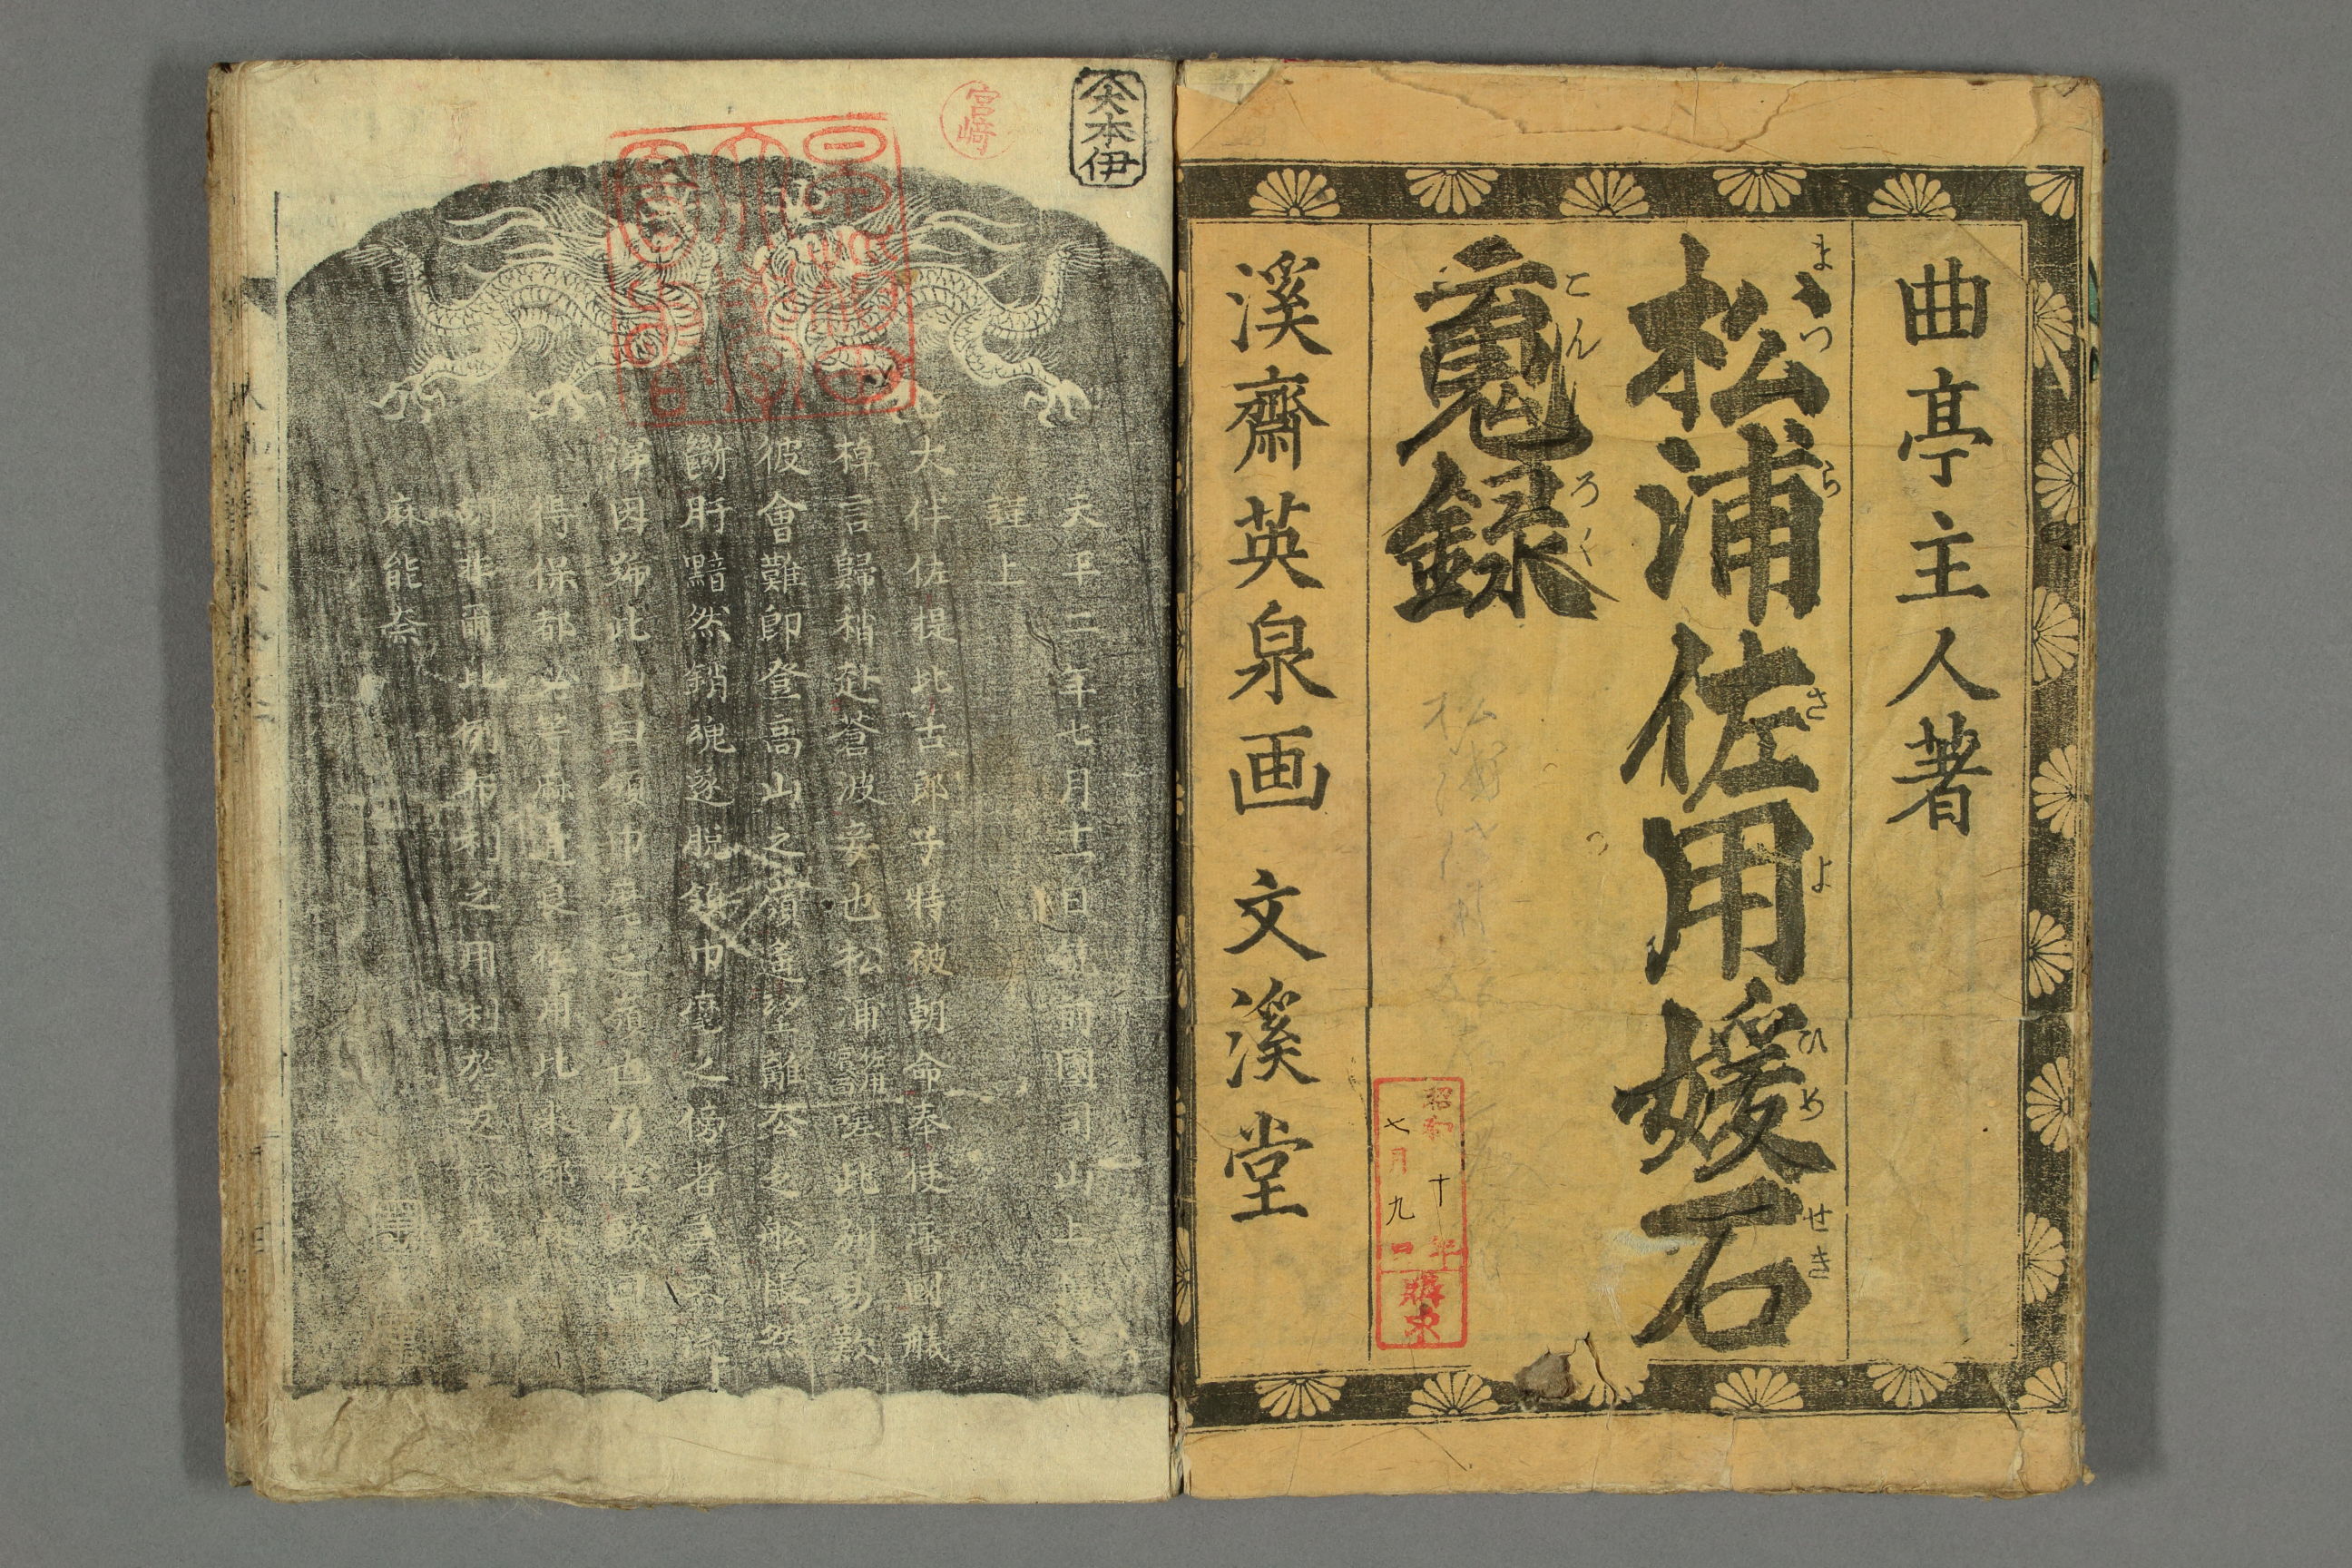 曲亭主人著
松浦佐用媛石
まつらさよひめせき
䰟録
こんろく
溪齋英泉画 文溪堂
昭和十年
七月九日
購求
本伊
宮崎
天平二年七月十一日筑前國司山上憶良
謹上
大伴佐提比古郎子特被朝命奉使藩國艤
棹言歸稍赴蒼波妾也松浦佐用嬪面嗟此別易歎
彼會難即登高山之嶺遙望離去之舩悵然
斷肝黯然銷魂遂脱領巾麾之傍者莫不流
涕因號此山曰領巾麾之嶺也乃作歌曰
得保都必等麻通良佐用比米都麻
故非爾比例布利之用利於返流夜
麻能奈